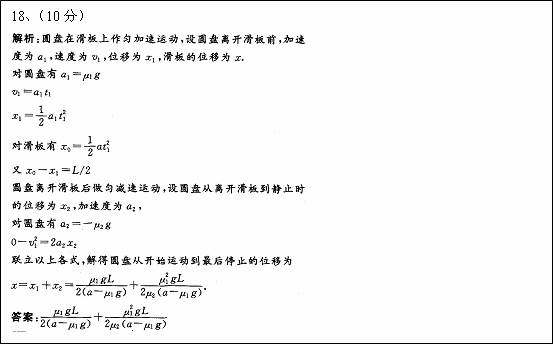 18、（10分）
解析：圆盘在滑板上作匀加速运动，设圆盘离开滑板前，加速
度为 a₁，速度为 v₁，位移为 x₁，滑板的位移为 x.
对圆盘有 a₁＝μ₁g
v₁＝a₁t₁
x₁＝1/2 a₁t₁²
对滑板有 x₀＝1/2 at₁²
又 x₀－x₁＝L/2
圆盘离开滑板后做匀减速运动，设圆盘从离开滑板到静止时
的位移为 x₂，加速度为 a₂，
对圆盘有 a₂＝－μ₂g
0－v₁²＝2a₂x₂
联立以上各式，解得圆盘从开始运动到最后停止的位移为
x＝x₁＋x₂＝μ₁gL/2(a－μ₁g)＋μ₁²gL/2μ₂(a－μ₁g).
答案：μ₁gL/2(a－μ₁g)＋μ₁²gL/2μ₂(a－μ₁g)